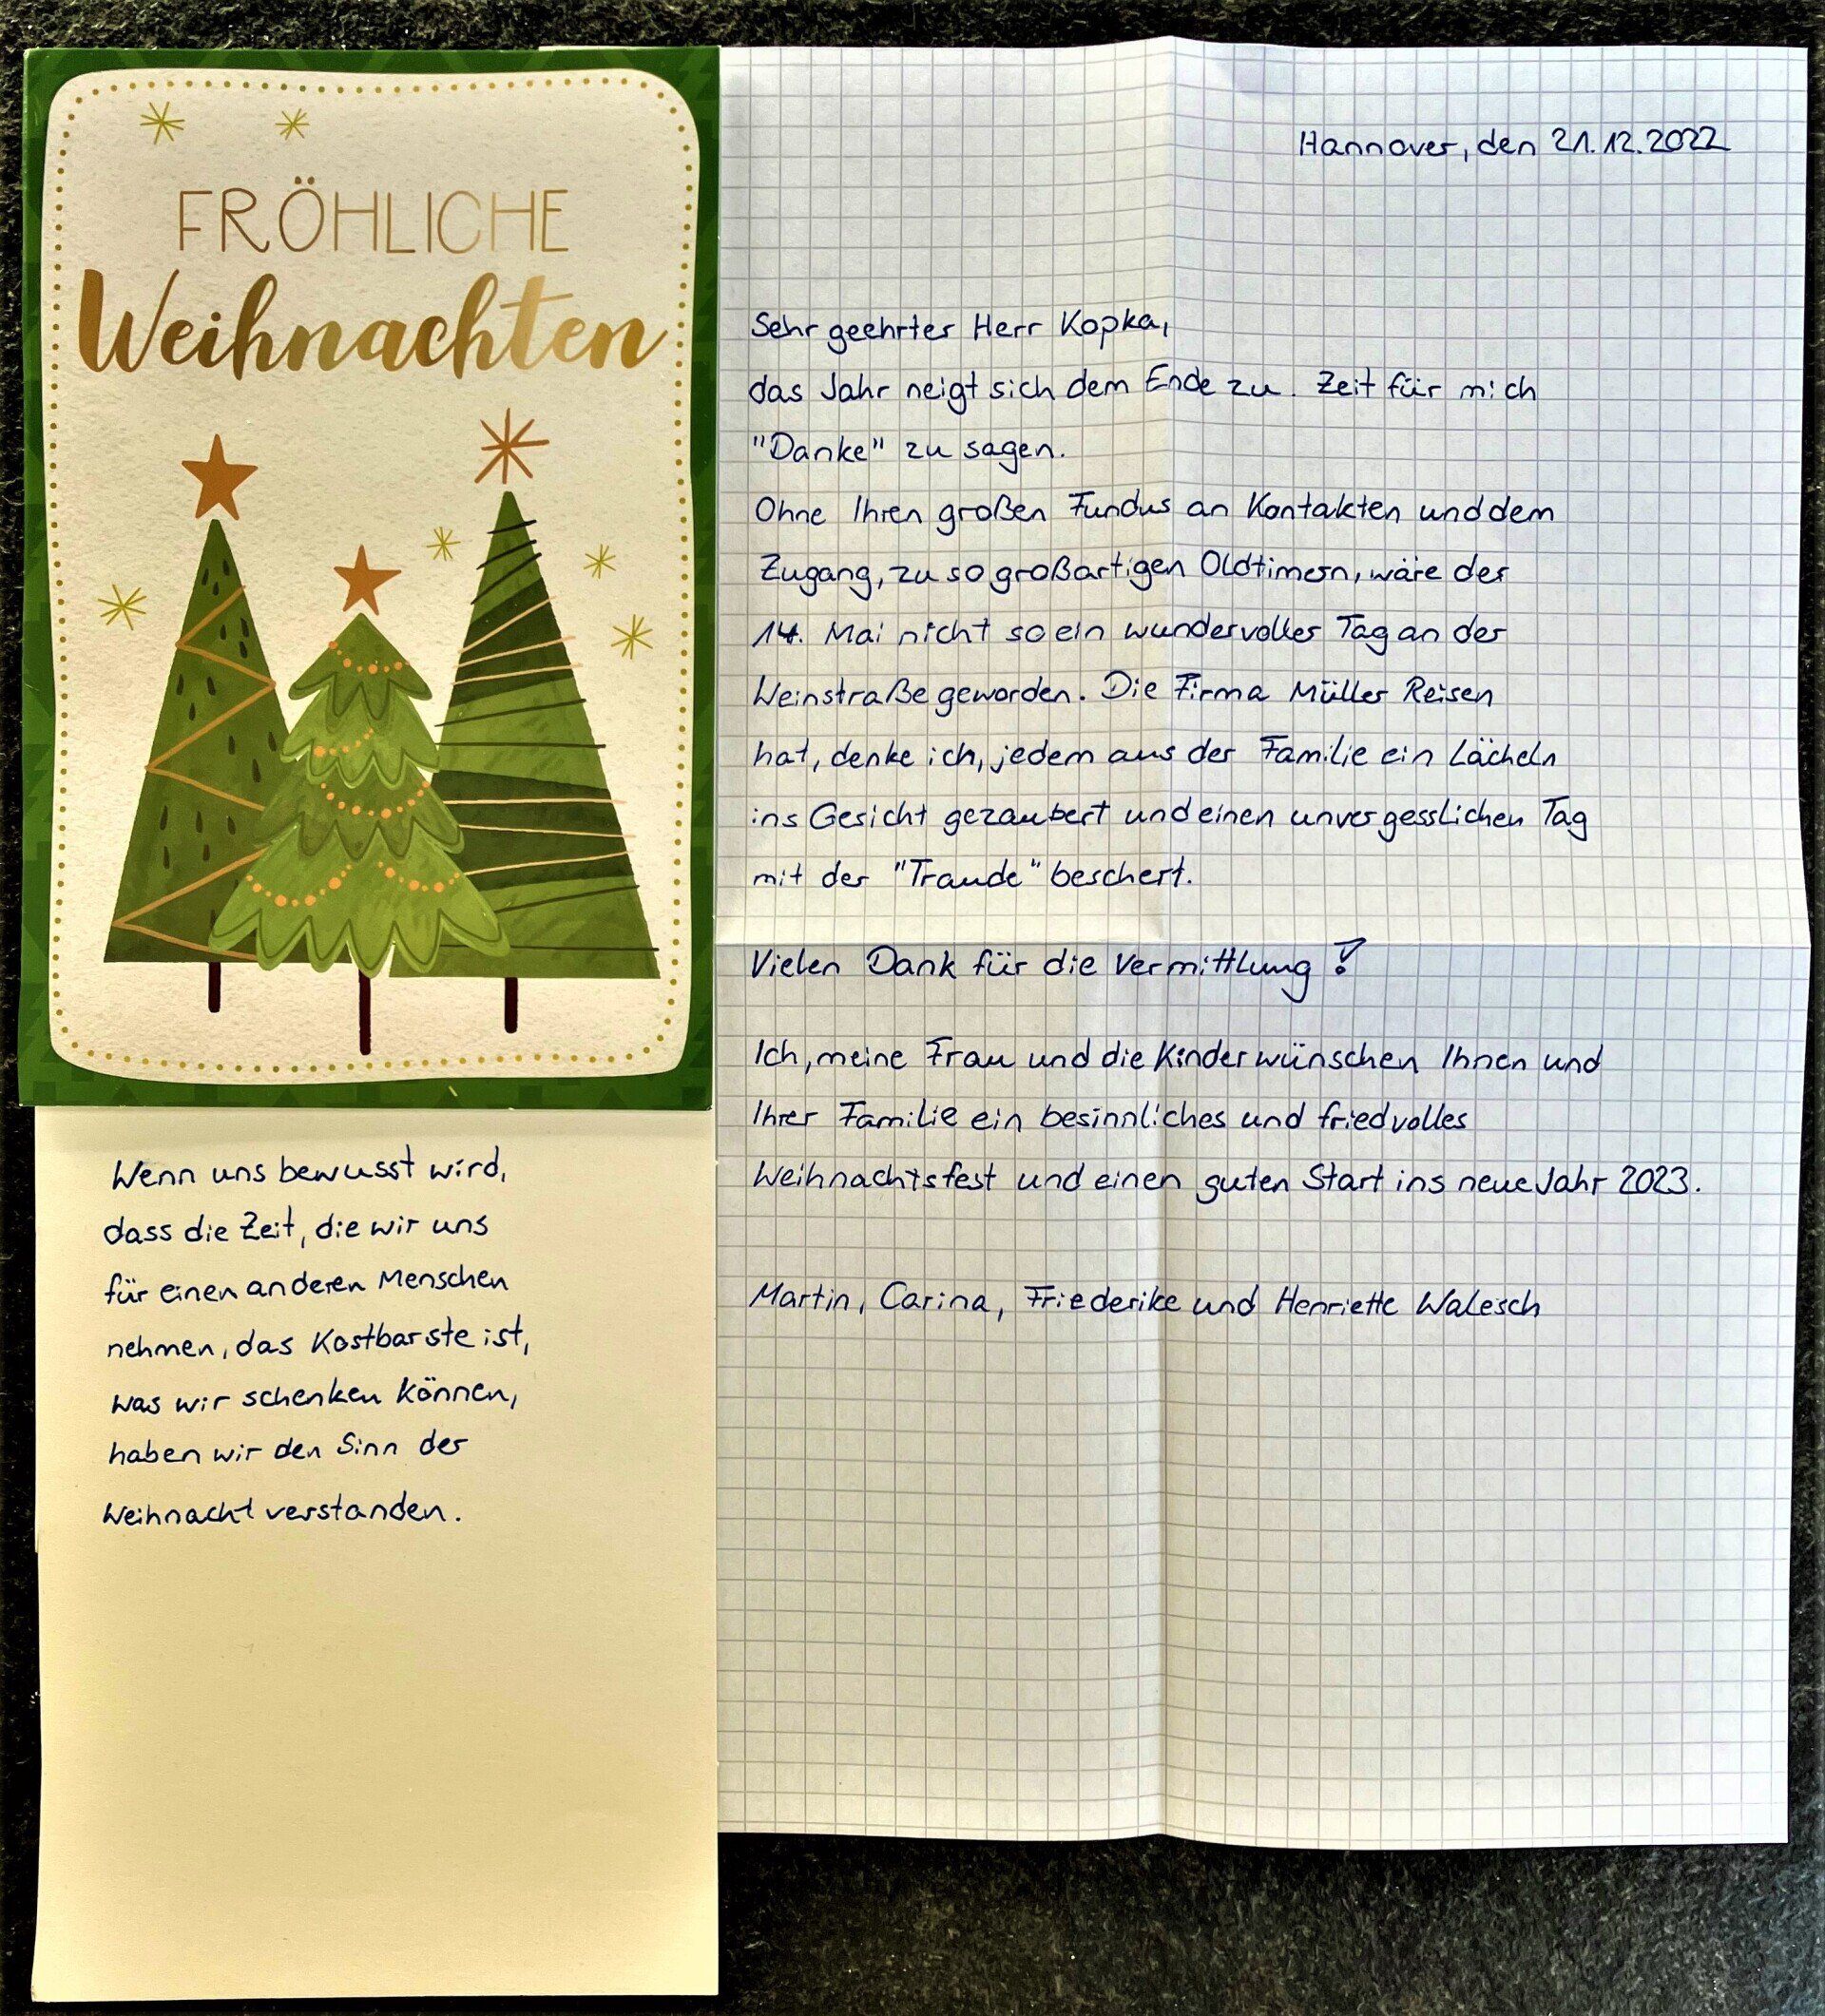 FRÖHLICHE
Weihnachten
Wenn uns bewusst wird,
dass die Zeit, die wir uns
für einen anderen Menschen
nehmen, das Kostbarste ist,
was wir schenken können,
haben wir den Sinn der
Weihnacht verstanden.
Hannover, den 21.12.2022
Sehr geehrter Herr Kopka,
das Jahr neigt sich dem Ende zu. Zeit für mich
"Danke" zu sagen.
Ohne Ihren großen Fundus an Kontakten und dem
Zugang, zu so großartigen Oldtimern, wäre der
14. Mai nicht so ein wundervoller Tag an der
Weinstraße geworden. Die Firma Müller Reisen
hat, denke ich, jedem aus der Familie ein Lächeln
ins Gesicht gezaubert und einen unvergesslichen Tag
mit der "Traude" beschert.
Vielen Dank für die Vermittlung!
Ich, meine Frau und die Kinder wünschen Ihnen und
Ihrer Familie ein besinnliches und friedvolles
Weihnachtsfest und einen guten Start ins neue Jahr 2023.
Martin, Carina, Friederike und Henriette Walesch